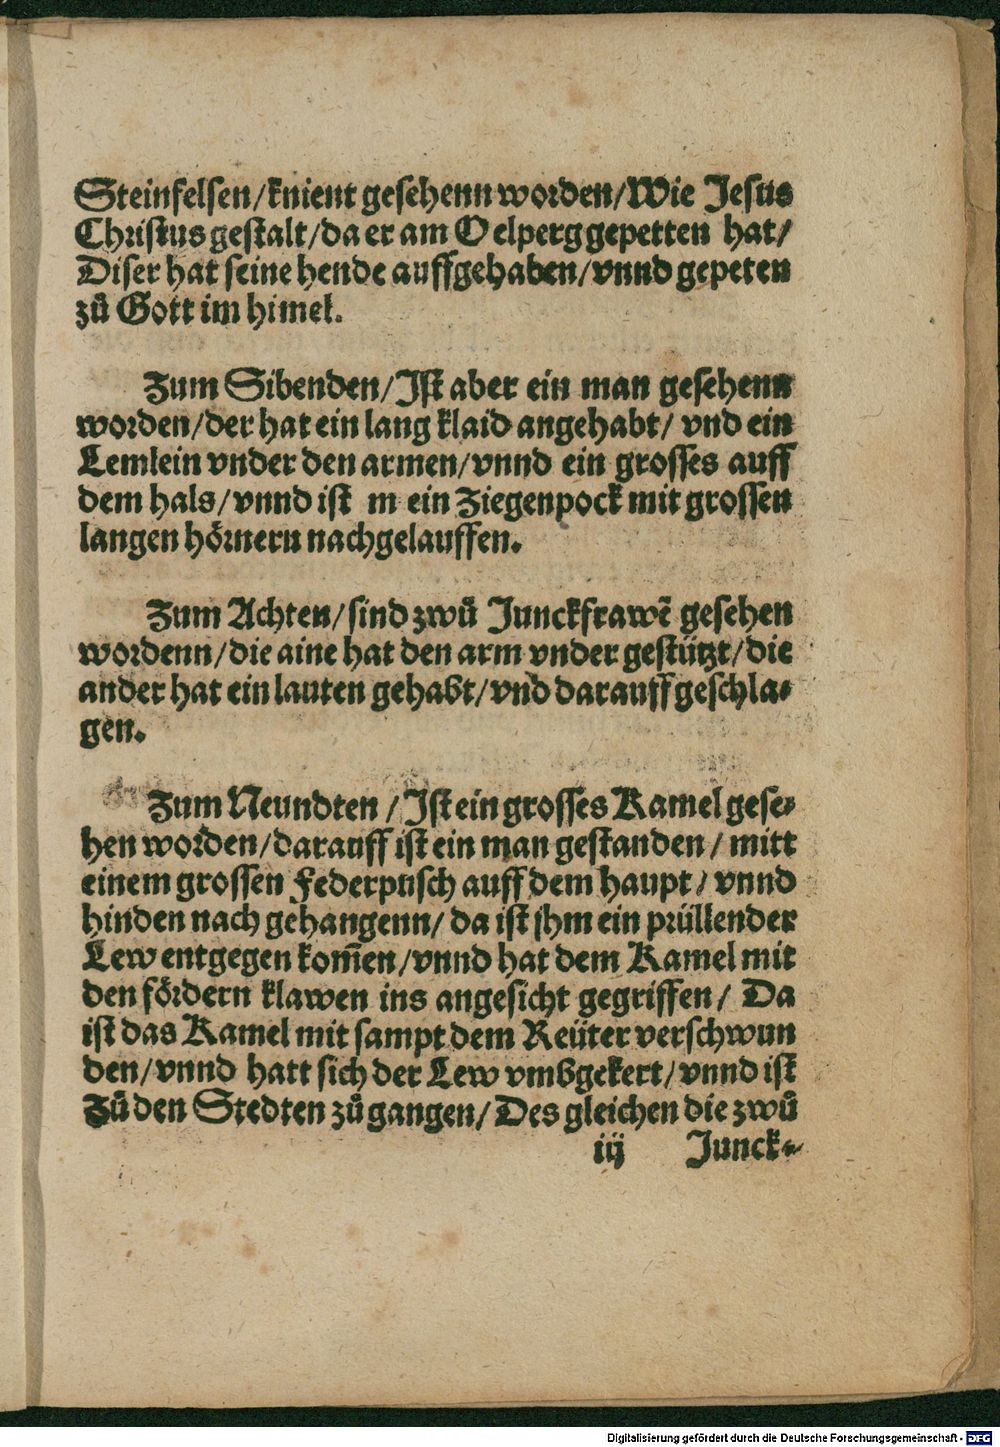 Steinfelsen/knient gesehenn worden/Wie Jesus
Christus gestalt/da er am Oelperg gepetten hat/
Diser hat seine hende auffgehaben/vnnd gepeten
zů Gott im himel.
Zum Sibenden/Ist aber ein man gesehenn
worden/der hat ein lang klaid angehabt/ vnd ein
Lemlein vnder den armen/vnnd ein grosses auff
dem hals/vnnd ist m ein Ziegenpock mit grossen
langen hörnern nachgelauffen.
Zum Achten/sind zwů Junckfrawē gesehen
wordenn/die aine hat den arm vnder gestützt/die
ander hat ein lauten gehabt/vnd darauff geschla-
gen.
Zum Neundten /Ist ein grosses Kamel gese-
hen worden/darauff ist ein man gestanden/ mitt
einem grossen Federpusch auff dem haupt/ vnnd
hinden nach gehangenn/ da ist jhm ein prüllender
Lew entgegen kom̄en/vnnd hat dem Kamel mit
den fördern klawen ins angesicht gegriffen/ Da
ist das Kamel mit sampt dem Reüter verschwun
den/vnnd hatt sich der Lew vmbgekert/vnnd ist
Zů den Stedten zů gangen/Des gleichen die zwů
iij Junck-
Digitalisierung gefördert durch die Deutsche Forschungsgemeinschaft - DFG